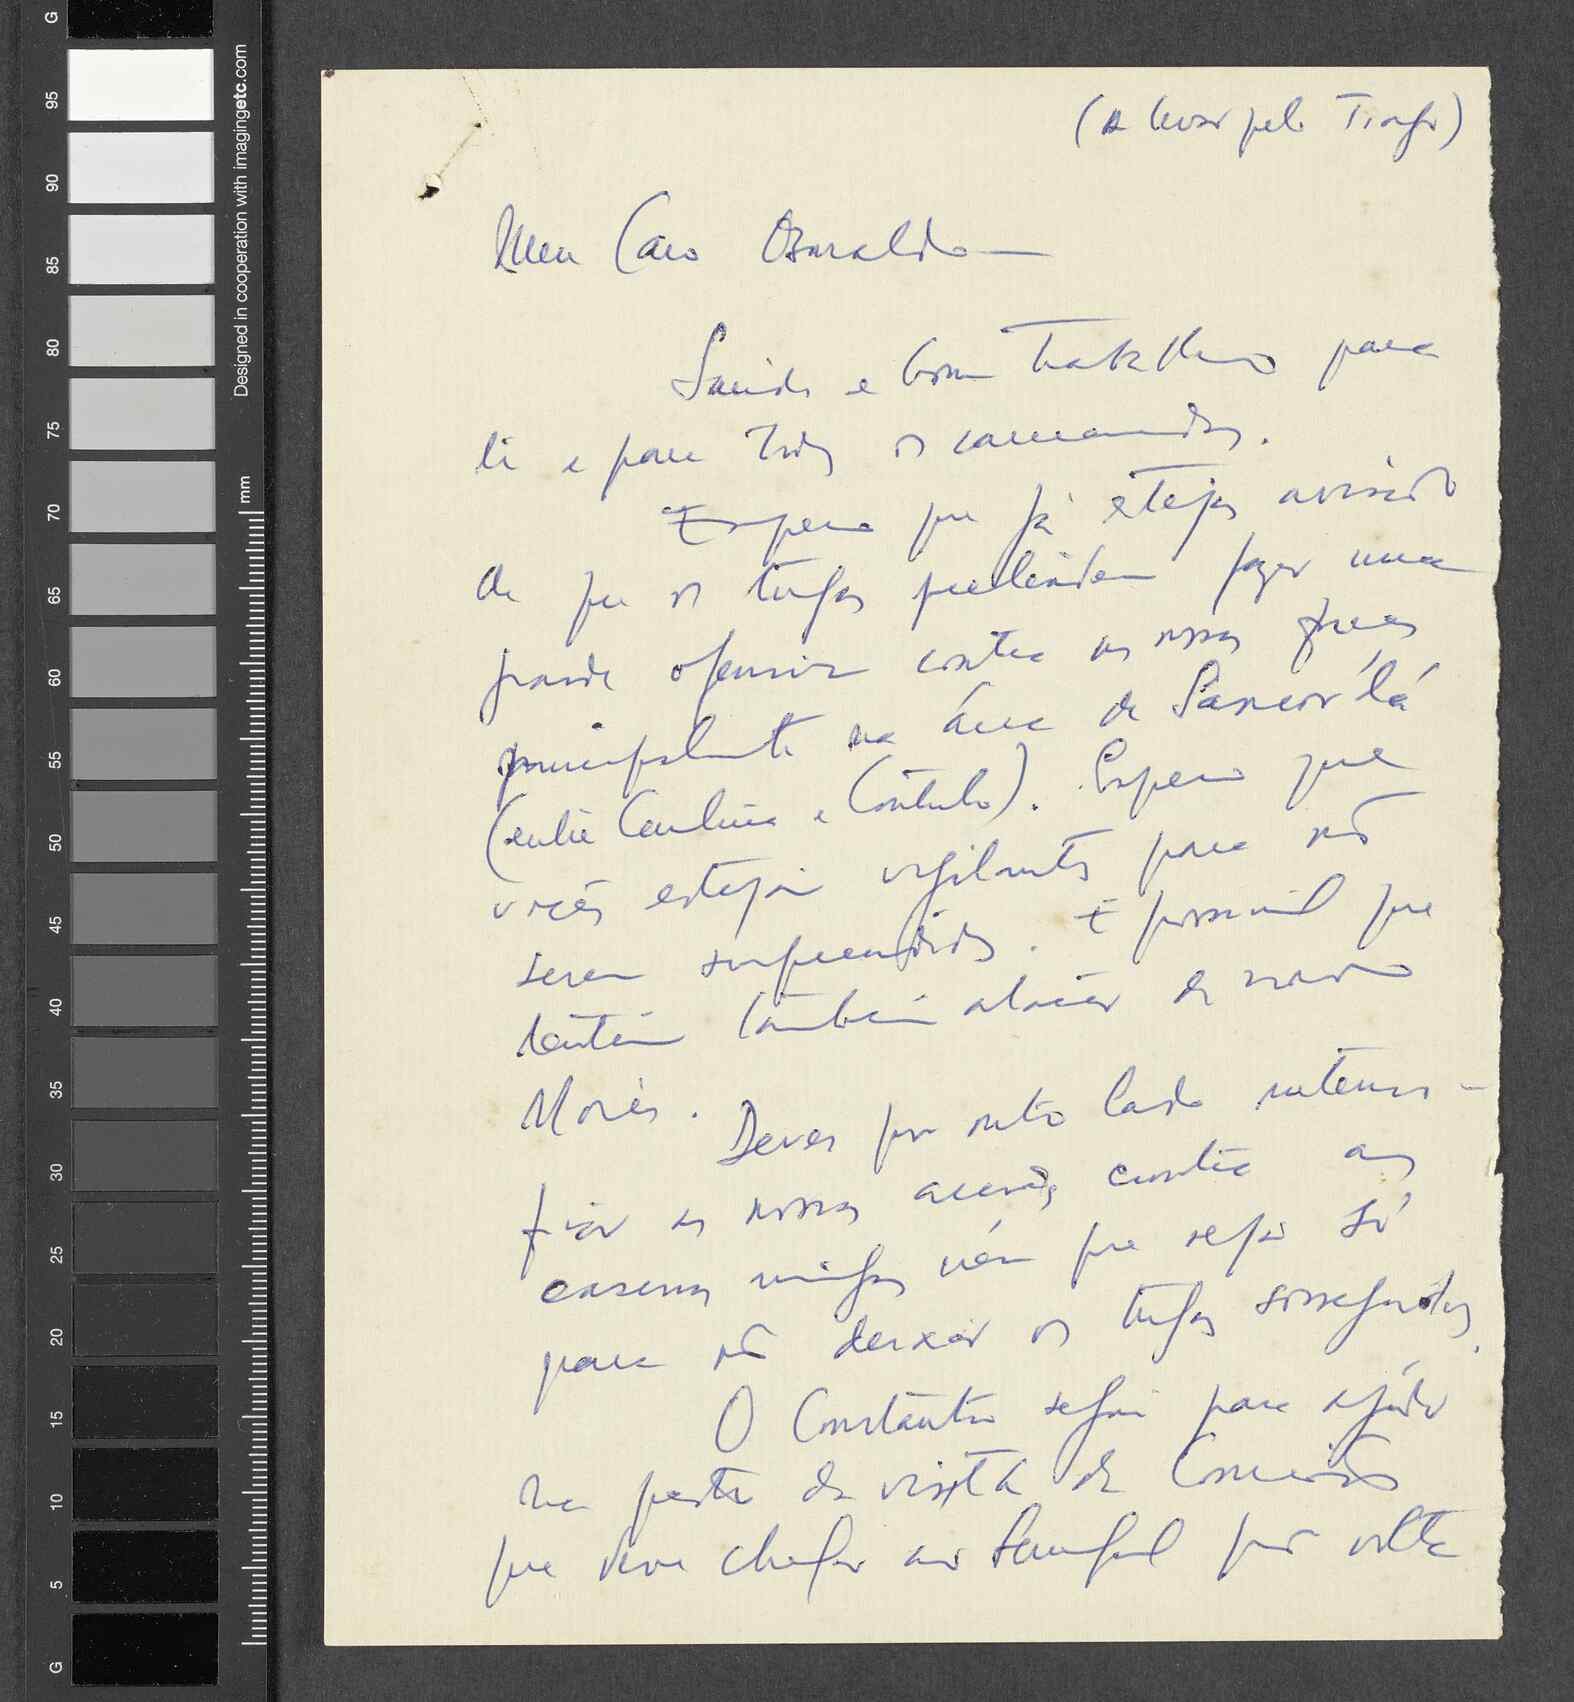 (a levar pelo Tiago)
Meu Caro Osvaldo
Saúde e bom trabalho para
ti e para todos os camaradas.
Espero que já estejas avisado
de que os tugas pretendem fazer uma
grande ofensiva contra as nossas forças
principalmente na área de Sancorlá
(entre Canturé e Cóntubo). Espero que
vocês estejam vigilantes para não
serem surpreendidos. É possível que
tentem também atacar de novo
Morés. Deves por outro lado intensi-
ficar as nossas acções contra os
para não deixar os tugas sossegados.
O Constantino seguiu para ajudar
na parte da visita da Comissão
que deve chegar ao Senegal por volta
G
95
90
85
80
75
70
65
60
55
50
45
40
35
30
25
20
15
10
5
G
Designed in cooperation with imagingetc.com
mm